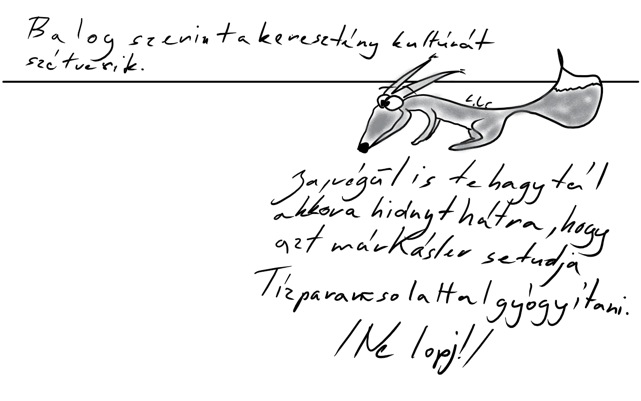 Balog szerint a keresztény kultúrát
szétverik.
Ja, végül is te hagytál
akkora hiányt hátra, hogy
azt már Kásler se tudja
Tízparancsolattal gyógyítani.
/Ne lopj!/